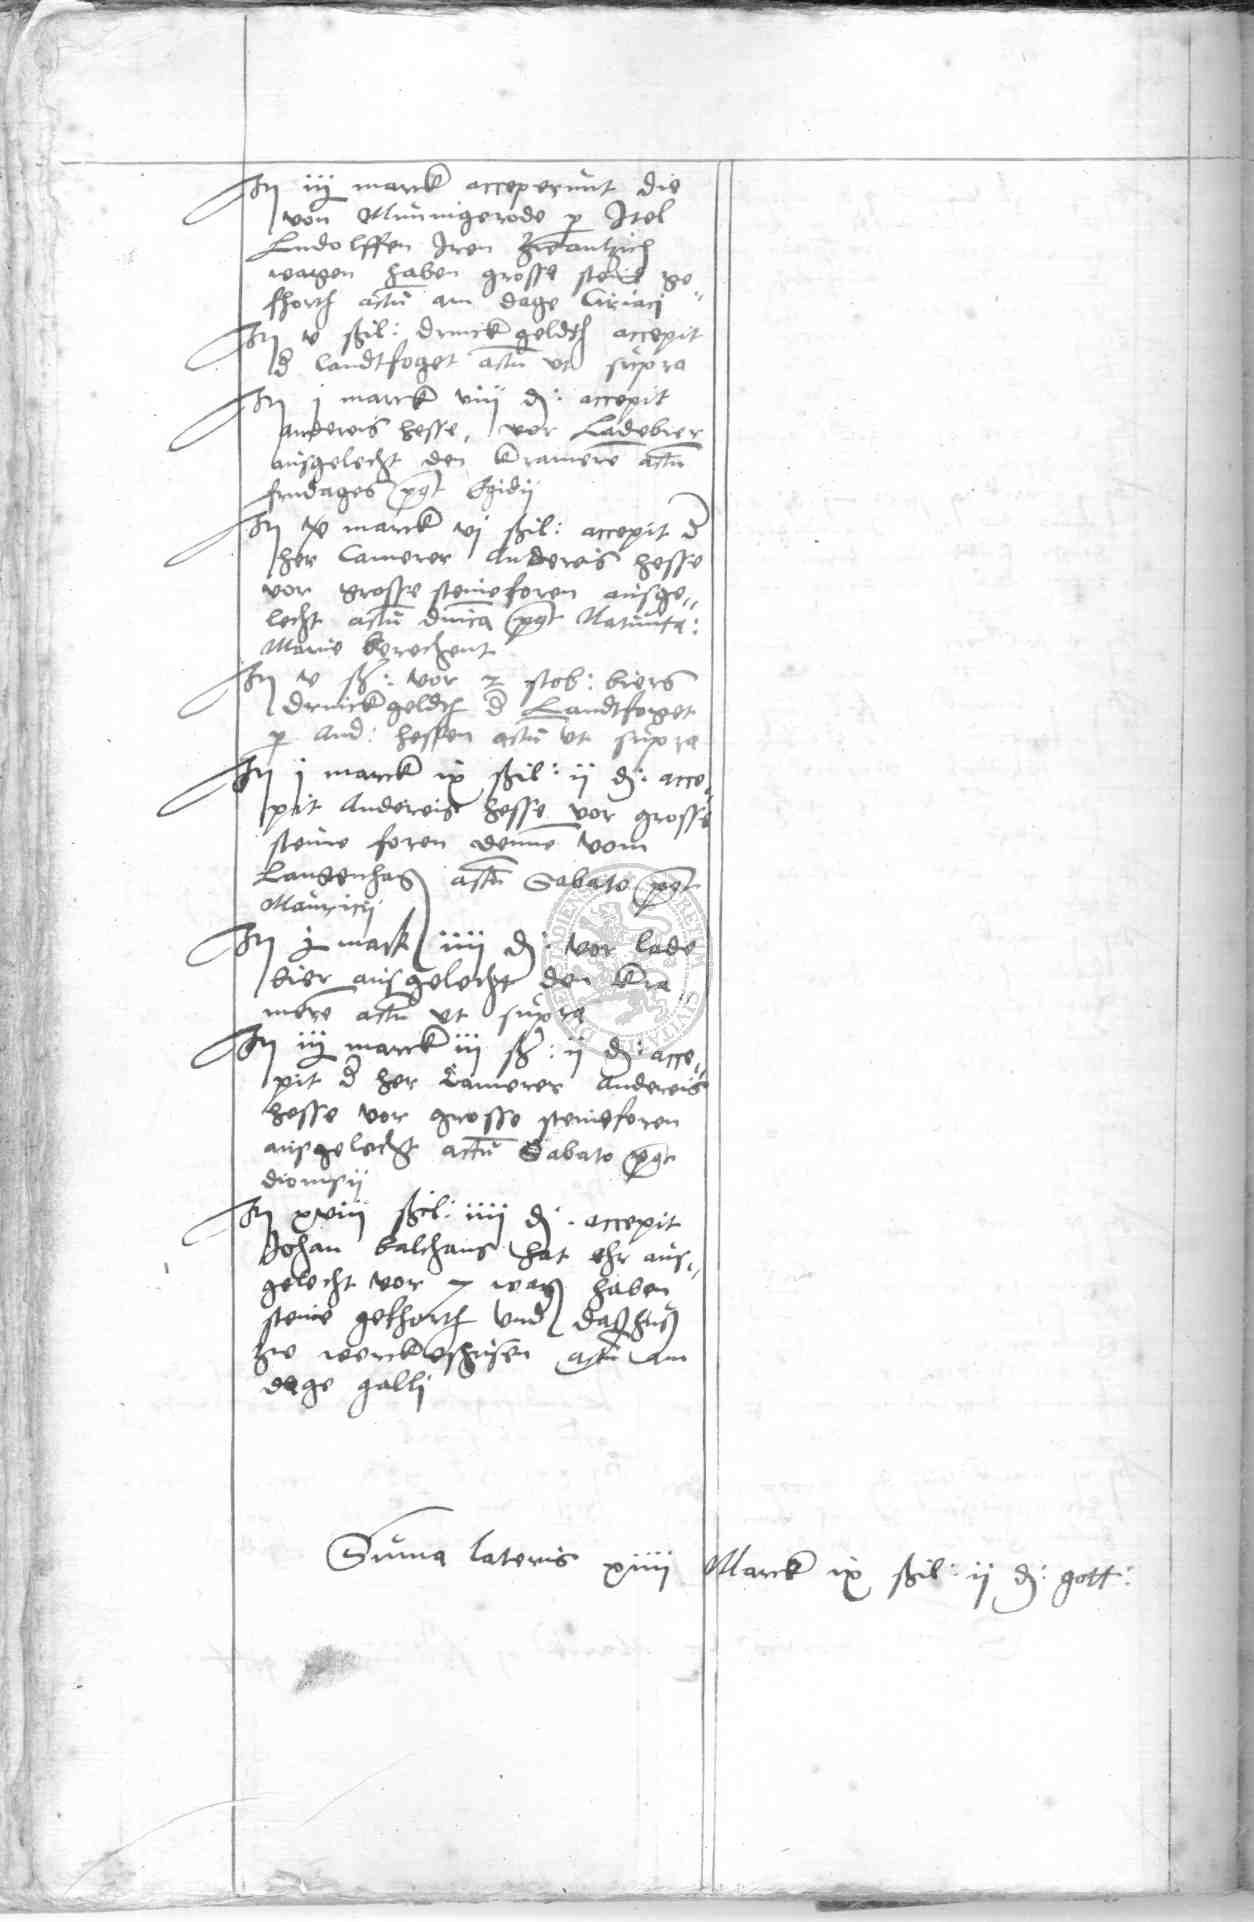 Itm iij marck acceperunt die
von Minnigerode p Itel
Ludolffen Iren
wagen haben grosse steine ge"
fhorth actu am dage Ciriaci
Itm v ßil: drinckgeldth accepit
d landtfoget actu ut supra
Itm j marck viij d: accepit
Andereis hesse, vor Ladebier
ausgelecht den kramere actu
fridages post Egidij
Itm marck vj ßil: accepit d
her Camerer Andereis hesse
vor grosse steine foren ausge"
lecht actu dnica post Nativita:
Marie berechent
Itm v ß: vor 2 stob: biers
drinckgeldth d Landtfoget
p And: hessen actu ut supra
Itm j marck ix ßil: ij d: acce"
pit Andereis hesse vor grosse
steine foren denne vom
Langenhag actu Sabato post
Mauricij
Itm mark iiij d: vor lade
bier ausgelecht den kra"
mere actu ut supra
Itm iij marck iij ß: ij d: acce"
pit d her Camerer Andereis
hesse vor grosse steine foren
ausgelecht actu Sabato post
dionisij
Itm xviij ßil: iiij d: accepit
Johan kalthans hat ehr aus"
gelecht vor 7 wag haben
steine gefhorth und
actu am
dage galli
Suma lateris xiiij Marck ix ßil: ij d: gott: